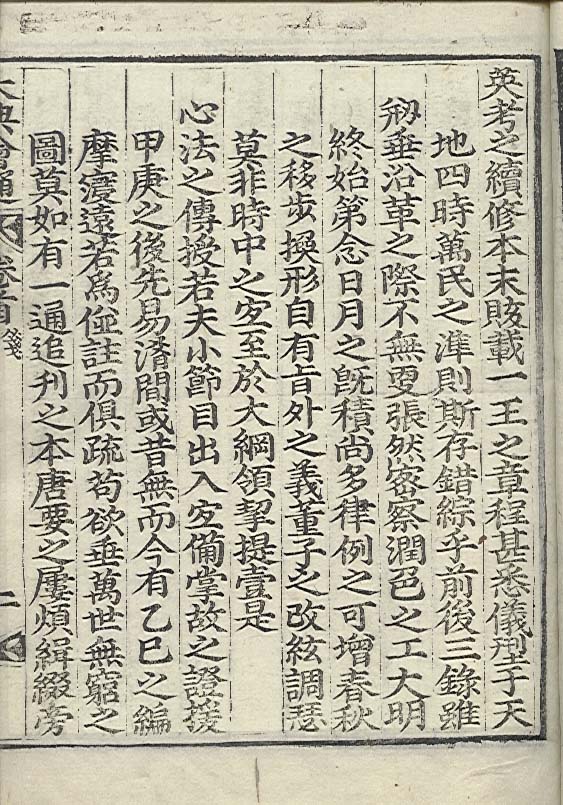 英考之續修本末賅載一王之章程甚悉儀型于天
地四時萬民之準則斯存錯綜乎前後三錄雖
刱垂沿革之際不無更張然密察潤色之工大明
終始第念日月之旣積尙多律例之可增春秋
之移步換形自有旨外之義董子之改絃調瑟
莫非時中之宜至於大綱領挈提壹是
心法之傳授若夫小節目出入宜備掌故之證援
甲庚之後先易淆間或昔無而今有乙巳之編
摩寖遠若爲竝註而俱疏苟欲垂萬世無窮之
圖莫如有一通追刊之本唐要之屢煩緝綴旁
大典會通 卷首 箋 二